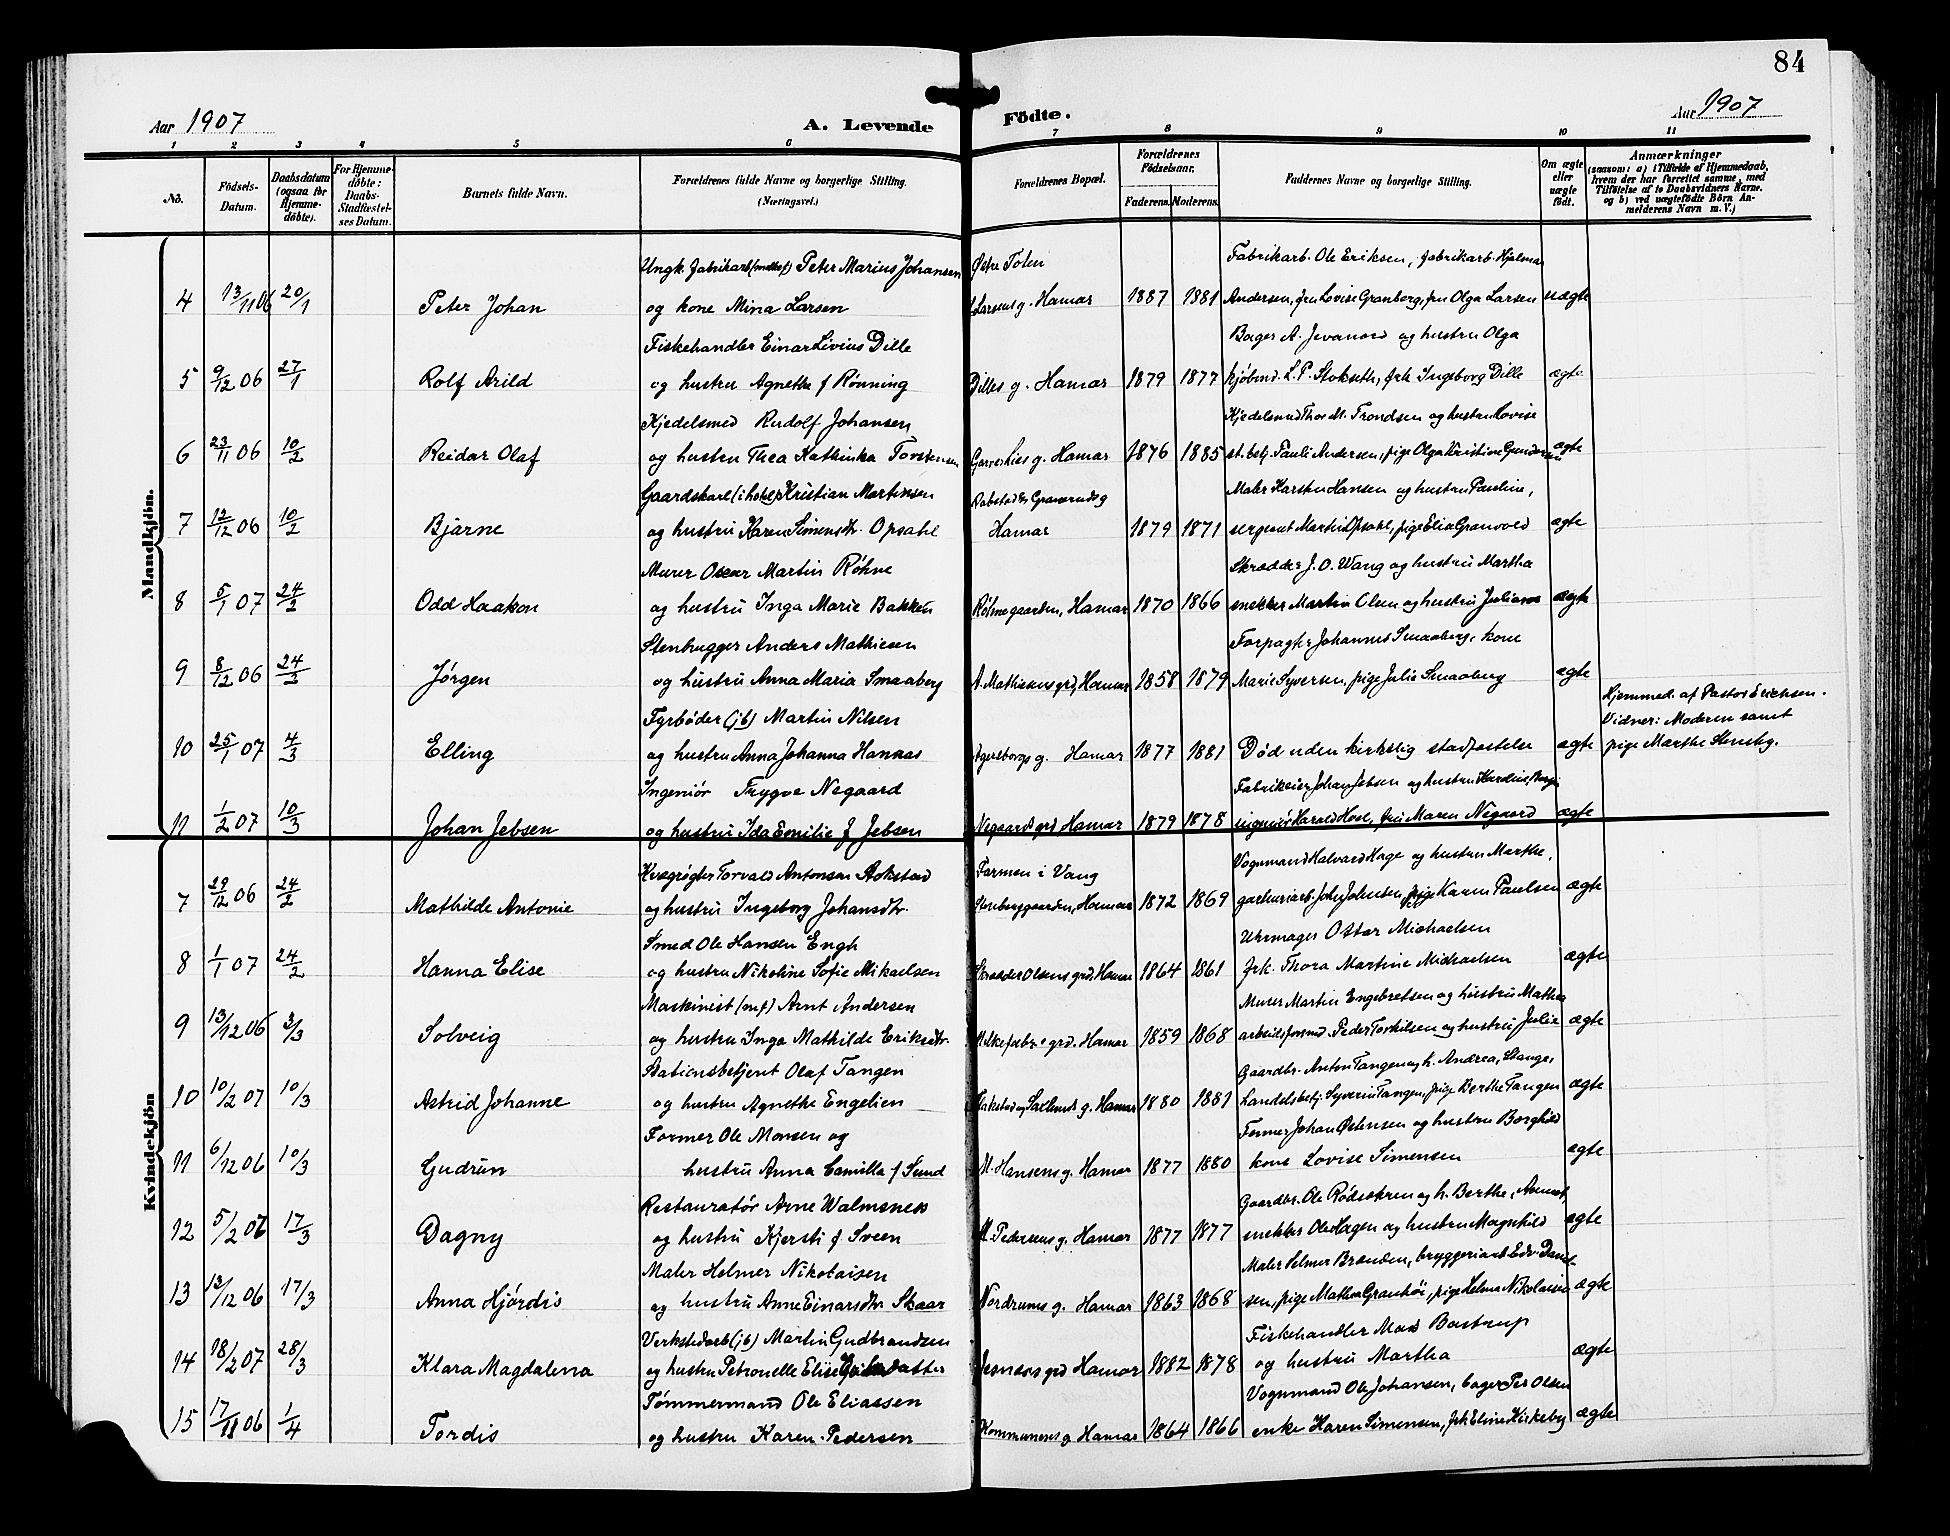 84
Aar 1907
A. Levende Födte.
Aar 1907
1 2 3 4 5 6 7 8 9 10 11
No.
Födsels-Datum.
Daabsdatum (ogsaa for Hjemme-döbte).
For Hjemme-döbte: Daabs-Stadfæstel-ses Datum.
Barnets fulde Navn.
Forældrenes fulde Navne og borgerlige Stilling. (Næringsvei.)
Forældrenes Bopæl.
Forældrenes Födselsaar.
Faderens. Moderens.
Faddernes Navne og borgerlige Stilling.
Om ægte eller uægte födt.
Anmærkninger
(saasom: a) i Tilfælde af Hjemmedaab, hvem der har forrettet samme, med Tilföielse af to Daabsvidners Navne. og b) ved uægtefödte Börn An-melderens Navn m. V.)
Mandkjön.
Ungk. fabrikarb. Peter Marius Johansen Østre Toten Fabrikarb. Ole Eriksen, fabrikarb. Hjalmar
4 13/11 06 20/1 Peter Johan og kone Mina Larsen Larsens g. Hamar 1887 1881 Andersen, fru Lovise Granberg, fru Olga Larsen uægte
Fiskehandler Einar Livius Dille Bager A. Jevanord og hustru Olga
5 9/12 06 27/1 Rolf Arild og hustru Agnethe f Rønning Dilles g. Hamar 1879 1877 kjøbmd. L. P. Stokseth, frk Ingeborg Dille ægte
Kjedelsmed Rudolf Johansen Kjedelsmed Thor M. Trondsen og hustru Lovise
6 23/11 06 10/2 Reidar Olaf og hustru Thea Kathinka Torstensen g. Hamar 1876 1885 st.betj. Pauli Andersen, pige Olga Kristine ægte
Gaardskarl (i hotel) Kristian Martinsen Maler Karsten Hansen og hustru Pauline,
7 12/12 06 10/2 Bjarne og hustru Karen Simensdtr. Opsahl Hamar 1879 1871 sergeant Martin Opsahl, pige Elia Granvold ægte
Murer Oscar Martin Röhne Skrædder J. O. Wang og hustru Martha
8 5/1 07 24/2 Odd Haakon og hustru Inga Marie Bakken Röhnegaarden, Hamar 1870 1866 snekker Martin Olsen og hustru Juliane ægte
Stenhugger Anders Mathiesen Forpagter Johannes Smaaberg, kone
9 8/12 06 24/2 Jørgen og hustru Anna Maria Smaaberg A. Mathiesens grd, Hamar 1858 1879 Marie Syversen, pige Julie Smaaberg ægte
Fyrbøder (jb) Martin Nilsen Hjemmed. af Pastor Erichsen.
Vidner: Moderen samt
10 25/1 07 4/3 Elling og hustru Anna Johanna Hannas g. Hamar 1877 1881 Død uden kirkelig stadfæstelse ægte pige Marthe Stensby.
Ingeniør Trygve Negaard Fabrikeier Johan Jebsen og hustru
11 1/2 07 10/3 Johan Jebsen og hustru Ida Emilie f Jebsen Negaards grd Hamar 1879 1878 ingeniør Harald Hoel, fru Maren Negaard ægte
Kvindekjön
Kvægrøgter Torvald Antonsen Stokstad Farmen i Vang Vognmand Halvard Hage og hustru Marthe,
7 29/12 06 24/2 Mathilde Antonie og hustru Ingeborg Johansdtr. Steneberggaarden, Hamar 1872 1869 garveriarb. John Johnsen, pige Karen Paulsen ægte
Smed Ole Hansen Engh Uhrmager Ottar Michaelsen
8 1/1 07 24/2 Hanna Elise og hustru Nikoline Sofie Mikaelsen Skrædder Olsens grd. Hamar 1864 1861 Frk. Thora Martine Michaelsen ægte
Maskinist Arnt Andersen Murer Martin Engebretsen og hustru Mathea
9 13/12 06 3/3 Solveig og hustru Inga Mathilde Eriksdtr. grd. Hamar 1859 1868 arbeidsformd. Peder Torkilsen og hustru Julie ægte
Stationsbetjent Olaf Tangen Gaardbr. Anton Tangen og h. Andrea, Stange,
10 10/2 07 10/3 Astrid Johanne og hustru Agnethe Engelien g. Hamar 1880 1881 handelsbetj. Syverin Tangen, pige Berthe Tangen ægte
Former Ole Monsen og Former Johan Østensen og hustru Borghild
11 6/12 06 10/3 Gudrun hustru Anna Camilla f Sund M. Hansens g. Hamar 1877 1880 kone Lovise Simensen ægte
Restauratør Arne Walmsnes Gaardbr. Ole Rødsakren og h. Berthe,
12 5/2 06 17/3 Dagny og hustru Kjersti f Sveen M. Pedersens g. Hamar 1877 1877 snekker Ole Hagen og hustru Magnhild ægte
Maler Helmer Nikolaisen Maler Pelmer Brænden, bryggeriarb. Edv. Daniel-
13 13/12 06 17/3 Anna Hjördis og hustru Anne Einarsdtr Skaar Nordrums g. Hamar 1863 1868 sen, pige Mathea Granhöi, pige Helma Nikolaisen ægte
Verkstedarb (jb) Martin Gudbrandsen Fiskehandler Mads Bastrup
14 18/2 07 28/3 Klara Magdalena og hustru Petronelle Elise grd Hamar 1882 1878 og hustru Martha ægte
Tømmermand Ole Eliassen Vognmand Ole Johansen, bager Per Olsen
15 17/11 06 1/4 Tordis og hustru Karen Pedersen Kommunens g. Hamar 1864 1866 enke Karen Simensen, frk Eline Kirkeby ægte